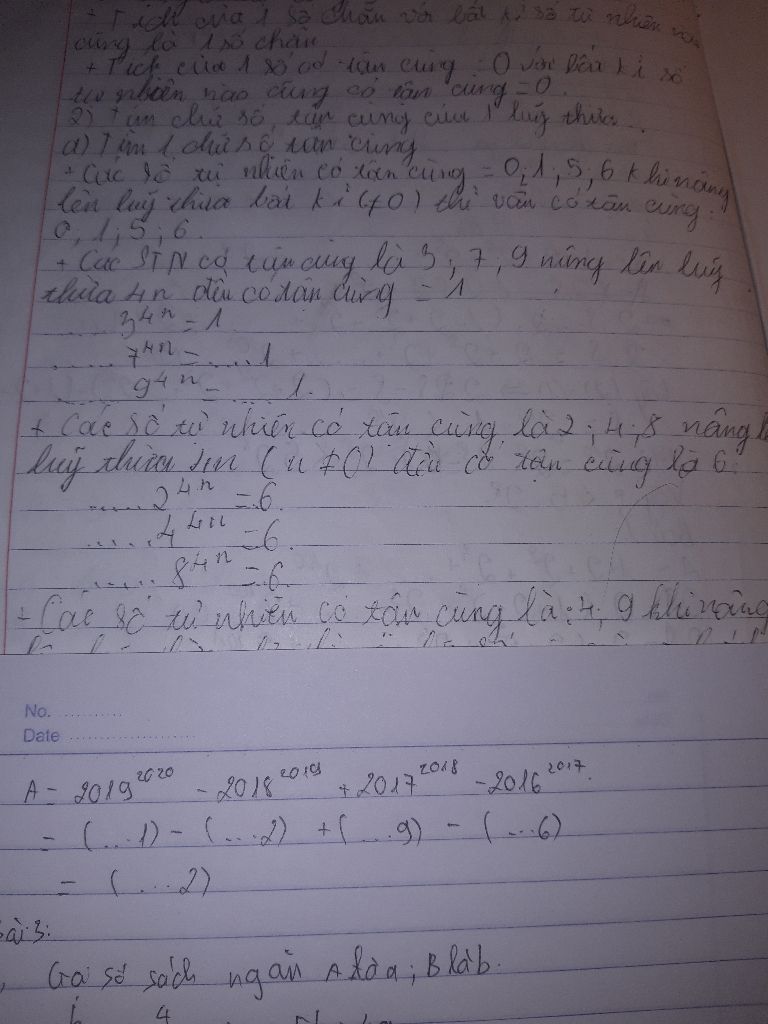 + Tích của 1 số chẵn với bất kì số tự nhiên nào
cũng là 1 số chẵn
+ Tích của 1 số có tận cùng = 0 với bất kì số
tự nhiên nào cũng có tận cùng = 0.
2) Tìm chữ số tận cùng của 1 luỹ thừa
a) Tìm 1 chữ số tận cùng
+ Các số tự nhiên có tận cùng = 0; 1; 5; 6 khi nâng
lên luỹ thừa bất kì (≠0) thì vẫn có tận cùng:
0, 1; 5; 6.
+ Các STN có tận cùng là 3; 7; 9 nâng lên luỹ
thừa 4n đều có tận cùng = 1
.....3⁴ⁿ = 1
.....7⁴ⁿ = ....1
.....9⁴ⁿ = ....1.
+ Các số tự nhiên có tận cùng là 2; 4; 8 nâng
luỹ thừa 4n (n ≠ 0) đều có tận cùng là 6.
.....2⁴ⁿ = 6.
.....4⁴ⁿ = 6.
.....8⁴ⁿ = 6.
- Các số tự nhiên có tận cùng là: 4; 9 khi nâng
No. ............
Date ........................
A = 2019²⁰²⁰ - 2018²⁰¹⁹ + 2017²⁰¹⁸ - 2016²⁰¹⁷.
= (...1) - (...2) + (...9) - (...6)
= (...2)
Bài 3:
Gọi số sách ngăn A là a; B là b.